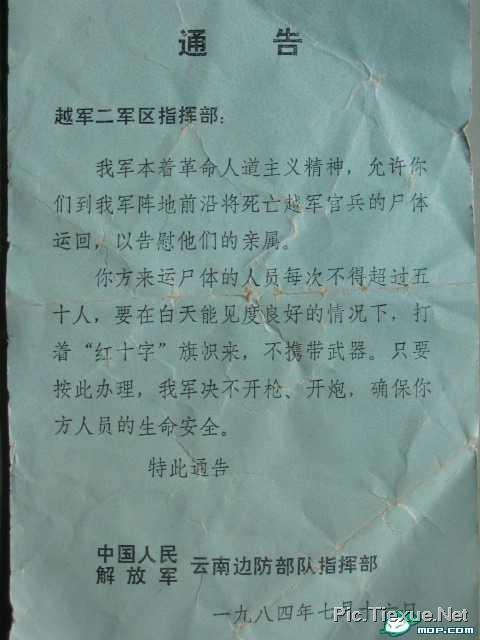 通 告
越军二军区指挥部：
我军本着革命人道主义精神，允许你
们到我军阵地前沿将死亡越军官兵的尸体
运回，以告慰他们的亲属。
你方来运尸体的人员每次不得超过五
十人，要在白天能见度良好的情况下，打
着“红十字”旗帜来，不携带武器。只要
按此办理，我军决不开枪、开炮，确保你
方人员的生命安全。
特此通告
中国人民
解放军
云南边防部队指挥部
一九八四年七月十日
Pic.Tiexue.Net
mop.com